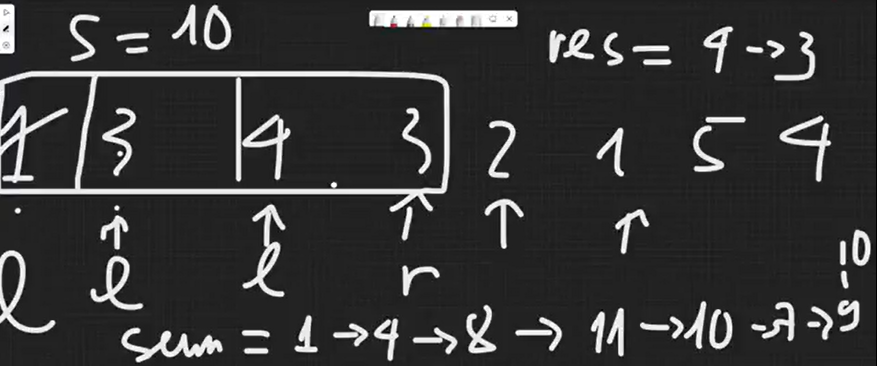 s = 10 res = 4 → 3
1 3 4 . 3 2 1 5 4
↑ ↑ ↑ ↑ ↑
l l l r 10
sum = 1 → 4 → 8 → 11 → 10 → 7 → 9